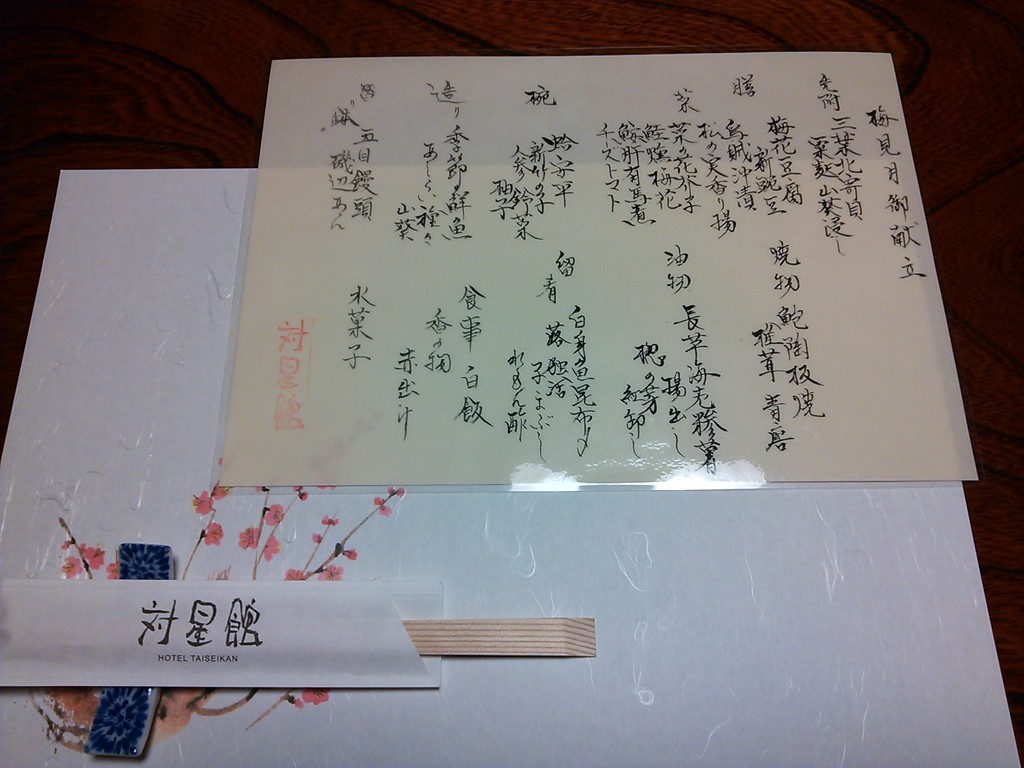 梅見月御献立
先附 三葉北寄貝
粟麩山葵浸し
膳 梅花豆腐
新豌豆
烏賊沖漬
松の実香り揚
菜 菜の花芥子
鮭塩梅花
鮟肝有馬煮
チーズトマト
椀 蛤安平
新竹の子
人参 鈴菜
柚子
造り 季節の鮮魚
あしらい種々
山葵
五目饅頭
磯辺あん
焼物 鮑陶板焼
椎茸 青唐
油物 長芋海老糝薯
揚出し
楤の芽
紅卸し
留肴 白身魚昆布〆
蕗 独活
子まぶし
ぽん酢
食事 白飯
香の物
赤出汁
水菓子
対星館
対星館
HOTEL TAISEIKAN